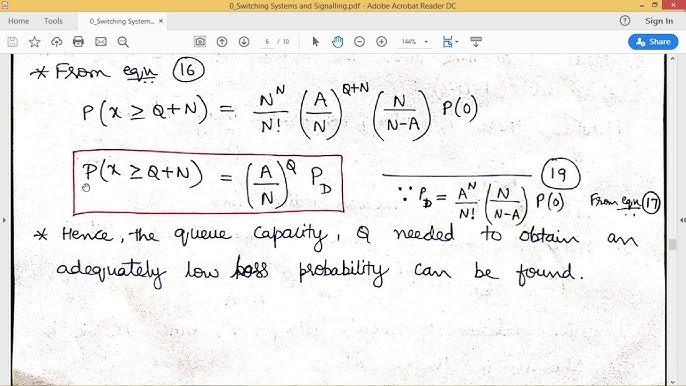 0_Switching Systems and Signalling.pdf - Adobe Acrobat Reader DC
Home Tools 0_Switching System... × Sign In
6 / 10 144% Share
* From eqn (16)
P(x ≥ Q+N) = N^N/N! (A/N)^(Q+N) (N/(N-A)) P(0)
P(x ≥ Q+N) = (A/N)^Q P_D (19)
∵ P_D = A^N/N! (N/(N-A)) P(0) From eqn (17)
* Hence, the queue capacity, Q needed to obtain an
adequately low loss probability can be found.